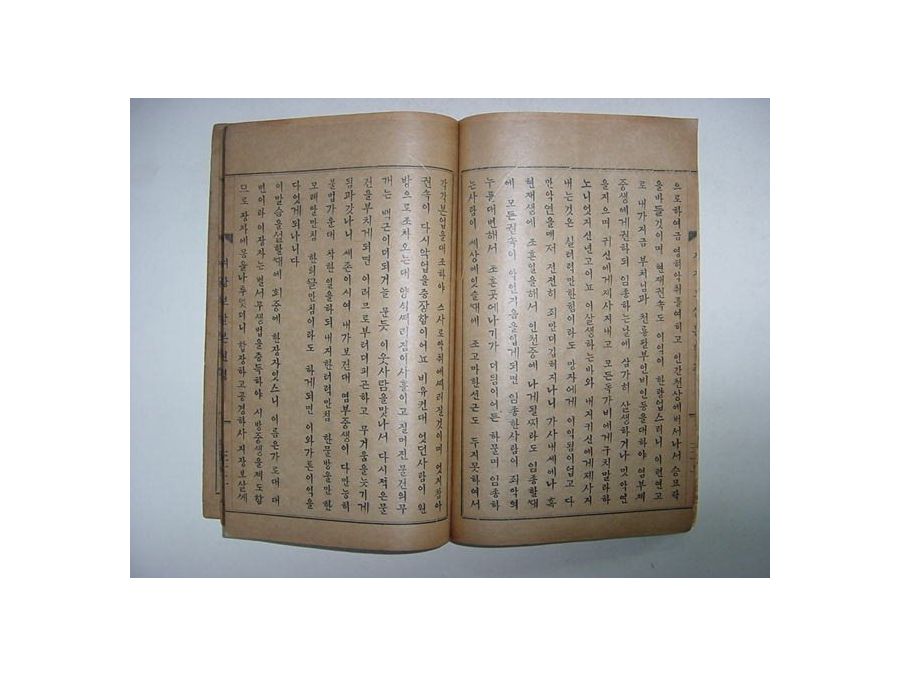 으로하여금 영히악취를여히고 인간천상에버서나서 승묘락
을바들것이며 현재권속도 이익이 한량업스리니 이런연고
로 내가지금 부처님과 천룡팔부인비인등을대하야 염부제
중생에게권하되 임종하는날에 삼가히 살생하거나 밋악연
을지으며 귀신에게제사지내고 모든독갑이에게구치말라하
노니엇지신년고이뇨 이살생하는바와 내지귀신에게제사지
내는것은 실터럭만한힘이라도 망자에게 이익됨이업고 다
만악연을매저 전전히 죄만더깁허지나니 가사내세에나 혹
현재생에 조흔일을해서 인천중에 나게될찌라도 임종할때
에 모든권속이 악인기음을입게되면 임종한사람이 죄악의
누를대변해서 조흔곳에나기가 더딈이어든 하물며 임종하
는사람이 세상에잇슬때에 조고마한선근도 두지못하여서
각각본업을대조하야 스사로악취에떠러질것이며 엇지참아
권속이 다시악업을증장함이어뇨 비유컨대 엇던사람이 원
방으로조차오는데 양식떠러짐이사흘이고 질머진물건의무
개는 백근이더되거늘 문듯 이웃사람을맛나서 다시적은물
건을부치게되면 이러므로부터더피곤하고 무거움을늣기게
됨과갓나니 세존이시여 내가보건대 염부중생이 다만능히
불법가운대 차한일을하되 내지한터럭만침 한물방울만한
모래알만침 한틔끌만침이라도 하게되면 이와가튼이익을
다엇게되나니다
이말슴을설할때에 회중에 한장자잇스니 이름은가로대 대
변이라이장자는 벌서무생법을증득하야 시방중생을제도함
므로 장자에몸을나투엇더니 합장하고공경하사 지장보살께
지장보살본원경